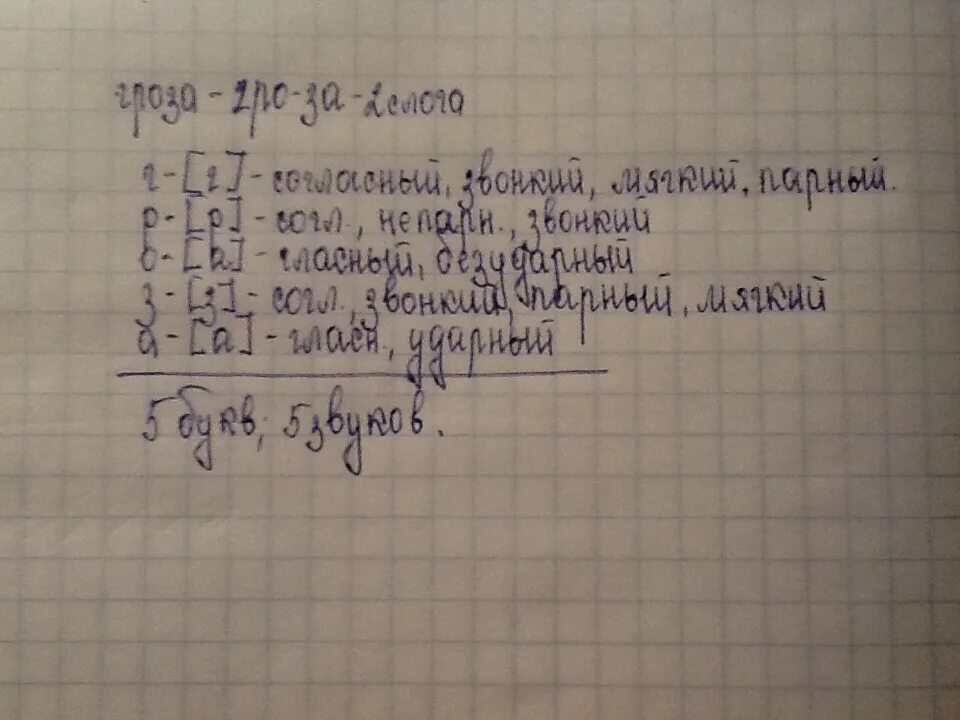 гроза - гро-за - 2 слога
г - [г] - согласный, звонкий, мягкий, парный.
р - [р] - согл., непарн., звонкий
о - [а] - гласный, безударный
з - [з] - согл., звонкий, парный, мягкий
а - [а] - гласн., ударный
5 букв; 5 звуков.